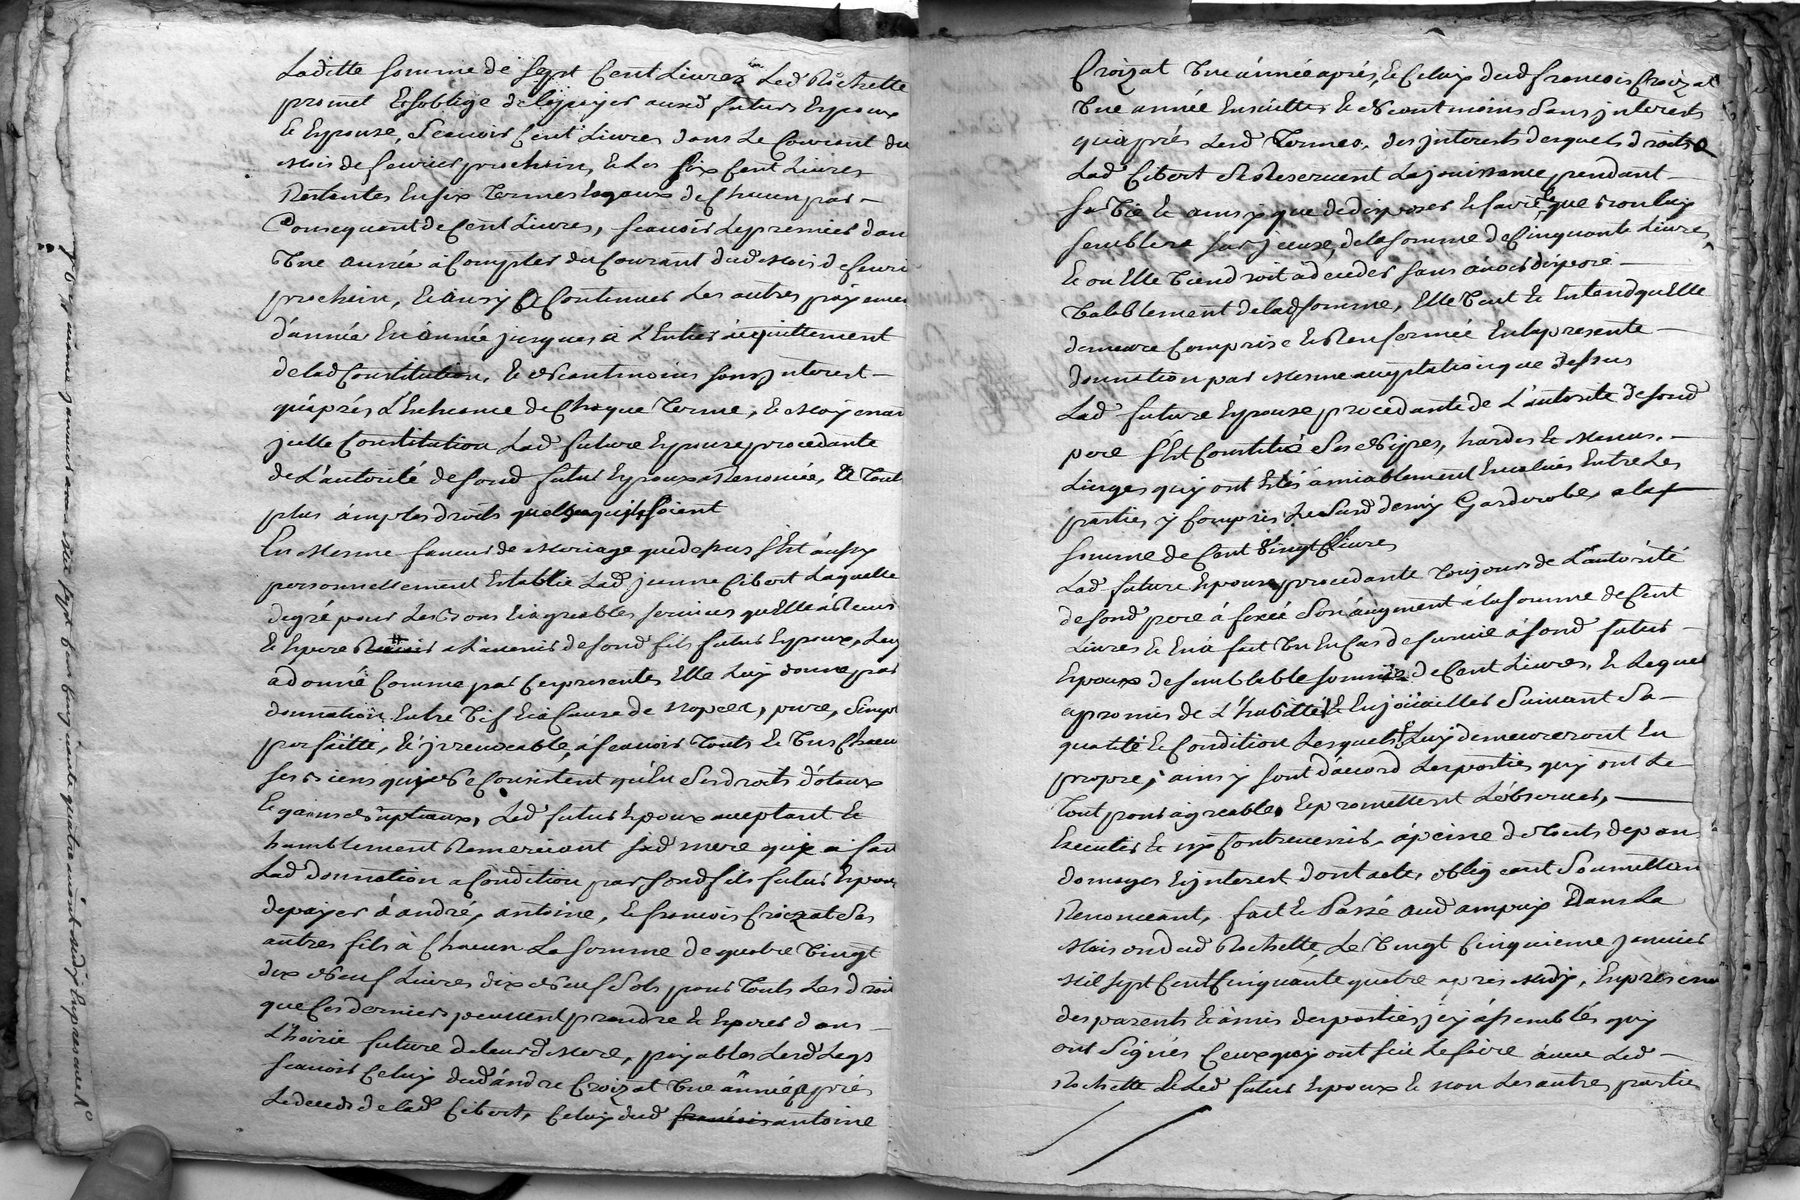 Laditte somme de sept Cent Livres Led Rochette
promet Et soblige de la payer ausd futurs Epoux
Et Epouse, Scauoir Cent Livres dans Le Courant du
Mois de feurier prochein, Et Les Six Cent Livres
Restantes En six Termes Egaux de Chacun par
Consequant de Cent Livres, scauoir Le premier dan
Vne année à Compter du Courant dud Mois de feuri
prochein, Et ainsy Continuer Les autres payemen
d'année En année jusques à L'Entier acquittement
de lad Constitution, Et Neantmoins sans jnterest
qu'après L'Echeance de Chaque Terme, Et Moyenan
jcelle Constitution Lad future Epouse procedante
de L'autorité de sond futur Epoux a Renoncée, A Tout
plus amples droits quelsquils soient
En Mesme faueur de Mariage que dessus s'Est aussy
personnellement Establie Lad jeanne Cibert Laquelle
de gré pour Les Bons Et agreables seruices qu'Elle à Receus
Et Espere a L'auenir de sond fils futur Epoux, Luy
a donné Comme par Ces presentes Elle Luy donne par
donnation Entre Vif Et à Cause de Nopces, pure, Simpl
parfaitte, Et jrreuocable, à scauoir Touts Et Vns Chacu
ses Biens qui Ne Consistent qu'En Ses droits dotaux
Et gains Nuptiaux, Led futur Epoux acceptant Et
humblement Remerciant sad mere qui a fait
Lad donnation a Condition par sond fils futur Epoux
de payer à andré, antoine, Et francois Croizat Ses
autres fils à Chacun La somme de quatre Vingt
dix Neuf Livres dix Neuf Sols pour Touts Les droit
que Ces derniers peuuent prendre Et Esperer dans
L'hoirie future de leurd Mere, payables Lesd Legs
scauoir Celuy dud andré Croizat Vne année après
Le deceds de lad Cibert, Celuy dud francois antoine
Croizat Vne année après, Et Celuy dud francois Croizat
Vne année Ensuitte, Et Neantmoins Sans jnterests
qu'après Lesd Termes, des jnterests desquels droits
Lad Cibert Se Reseruent La jouissance pendant
sa Vie Et ainsy que de disposer En sa Vie que Bon Luy
semblera sur jceux, de la somme de Cinquante Livres,
Et ou Elle Viendroit à deceder sans auoir disposé
Valablement de lad somme, Elle Veut Et Entend qu'Elle
demeure Comprise Et Renfermée En la presente
donnation par Mesme acceptation que dessus
Lad future Epouse procedante de L'autorité de sond
pere s'Est Constitué Ses Nippes, hardes Et Menus
Linges qui ont Estés amiablement Eualués Entre Les
parties y Compris Le Susd demy Garderobe, a la
somme de Cent Vingt Livres
Lad future Epouse procedante Toujours de L'autorité
de sond pere à fixée Son augment à la somme de Cent
Livres Et En à fait Vn En Cas de suruie à sond futur
Epoux de semblable somme de Cent Livres, Et Lequel
a promis de L'habiller Et Enjoüailler Suiuant Sa
qualité Et Condition Lesquels Luy demeureront En
propre, ainsy sont d'acord Les parties qui ont Le
Tout pour agreable, Et promettent L'obseruer,
Executer Et ny Contreuenir, à peine de Touts depans
domages Et jnterest dont acte, obligeant Soumettan
Renonceant, fait Et Passé aud ampuy Dans La
Maison dud Rochette, Le Vingt Cinquieme januier
Mil Sept Cent Cinquante quatre après Midy, En presence
des parents Et amis des parties jcy assemblés qui
ont Signés Ceux qui ont sçu Le faire auec Led
Rochette Et Led futur Epoux Et non Les autres parties
januier mil sept Cent Cinquante quatre auant midy En presence